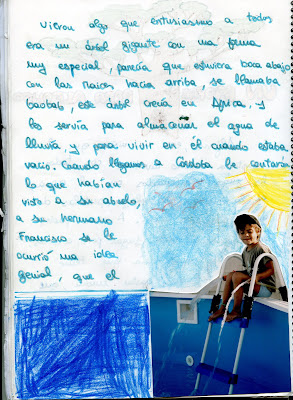 vieron algo que entusiasmo a todos
era un árbol gigante con una forma
muy especial, parecía que estuviera boca abajo
con las raices hacia arriba, se llamaba
baobab, este árbol crecía en África, y
les servía para almacenar el agua de
lluvia, y para vivir en él cuando estaba
vacio. Cuando llegamos a Córdoba le contaron
lo que habían
visto a su abuelo,
a su hermano
Francisco se le
ocurrió una idea
genial, que el